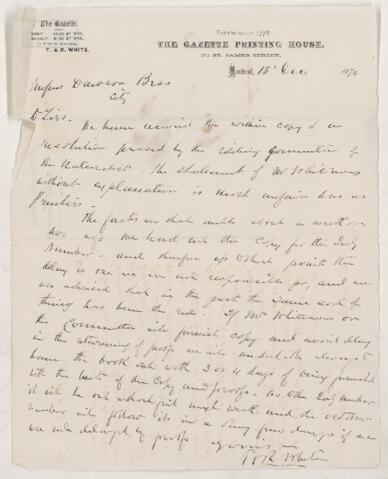 The Gazette.
T. & R. WHITE.
ESTABLISHED 1778
THE GAZETTE PRINTING HOUSE,
ST. JAMES STREET,
Montreal, 15 Dec 1870
Messrs Dawson Bros
City
D Sirs.
We have received the within copy of a
resolution passed by the Editing Committee of
the Naturalist. The statement of Mr Whiteaves
without explanation is most unfair to us as
Printers.
The facts are that until about a week or
two ago we had not the Copy for the July
number - and therefore up to that point the
delay is one we are not responsible for, and we
are advised that in the past the same sort of
thing has been the rule. If Mr Whiteaves or
the Committee will furnish copy and avoid delay
in the returning of proofs we will undertake always to
have the book out with 3 or 4 days of being furnished
with the last of the Copy and proofs. As to the July number
it will be out without fail next week and the October
number will follow it in a very few days if we
are not delayed by proofs
Yours
T & R White